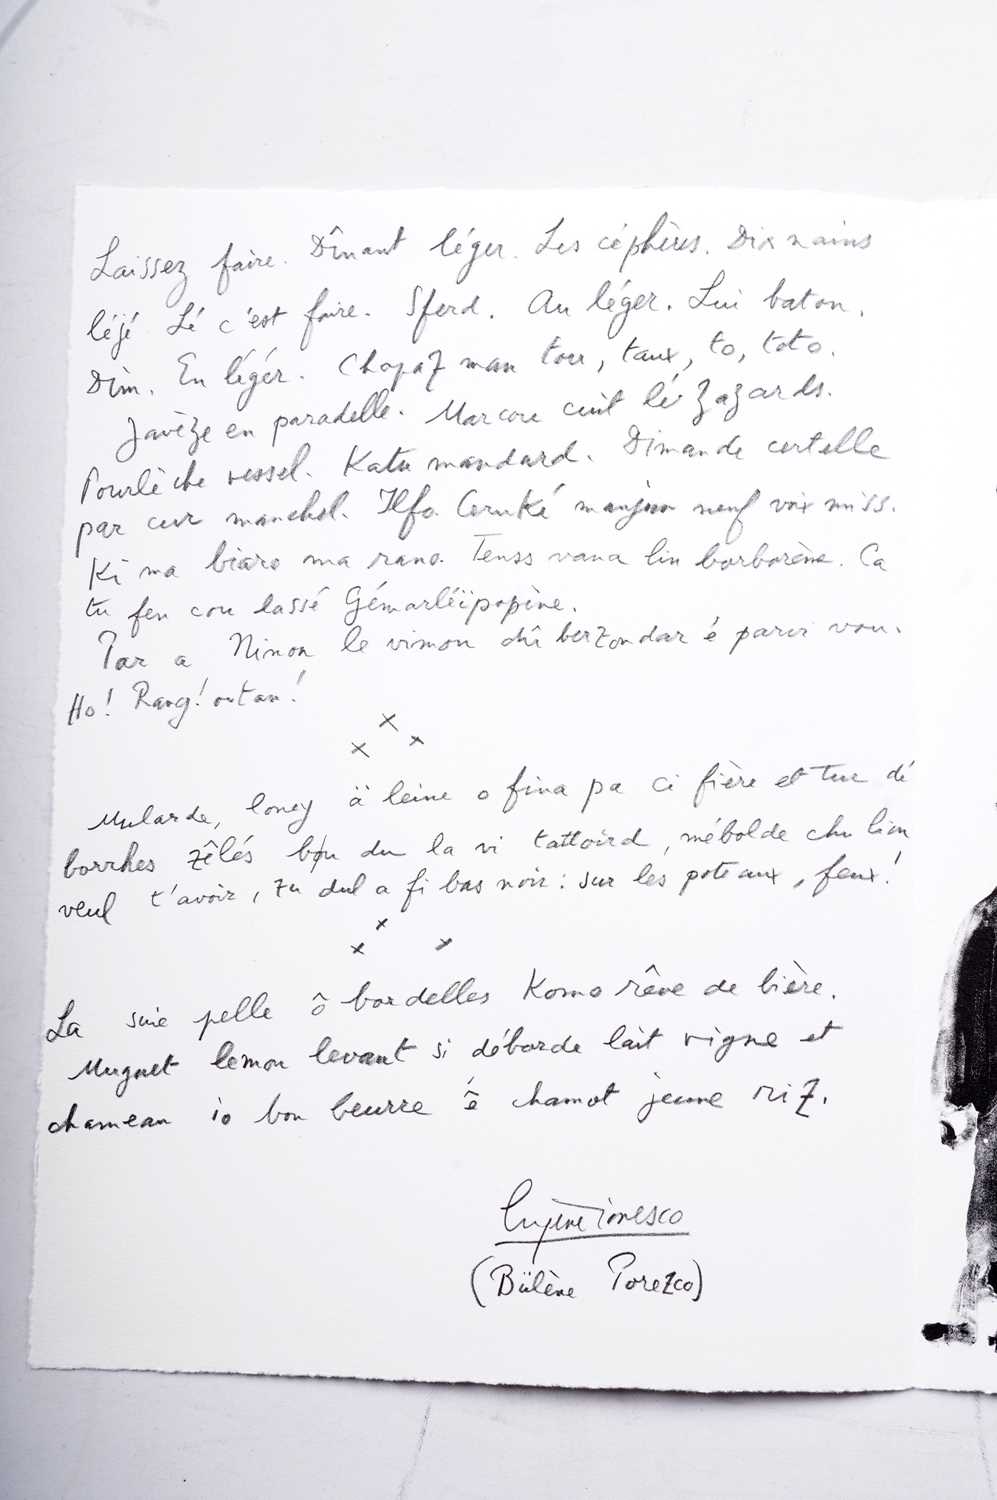 Laissez faire. Dînant léger. Les céphères. Dix nains
léjé. Lé c'est faire. Sferd. Au léger. Lui baton.
Dim. En légér. Chapaz man tou, taux, to, toto.
Javèze en paradelle. Marcou cuit lé zazards.
Pourlèche vessel. Katu mandard. Dimande certelle
par cur manchol. Ilfo Ceruké manjun neuf voix miss.
Ki ma biaro ma rano. Tenss vana lin borborène. Ca
tu fen cou lassé Gémarléïpopène.
Par a Ninon le vimon chî berzondar é parvi vou.
Ho! Rang! outan!
x x x
Mularde, loney ä leine o fina pa ci fière et Tuc dé
borrhes zêlés bou du la vi tattoird, mébolde chu lion
veul t'avoir, tu dul a fi bas noir: sur les poteaux, feux!
x x x
La suie pelle ô bordelles Komo rêve de bière.
Muguet lemon levant si déborde lait vigne et
chameau io bon beurre ê chamot jeune riz.
Eugène Ionesco
(Bülène Porezco)